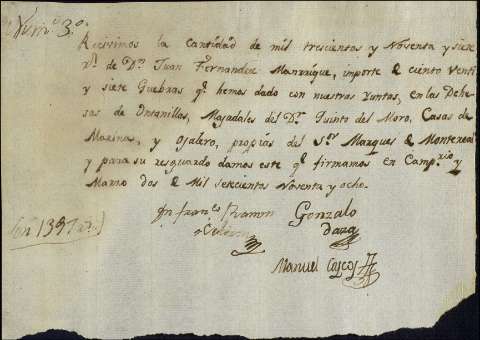 Num.º 3.º
Recivimos la cantidad de mil trescientos y Noventa y siete
r.s de D.n Juan Fernandez Manrrique, importe de ciento Venti
y siete Guebras q.e hemos dado con nuestras Yuntas, en las Dehe-
sas de Untanillas, Majadales del D.r Quinto del Moro, Casas de
Marina, y Ojalero, propias del S.or Marques de Montereal
y para su resguardo damos este q.e firmamos en Camp.rio y
Marzo dos de Mil Setecientos Noventa y ocho.
Gonzalo
Daza
Manuel
1397